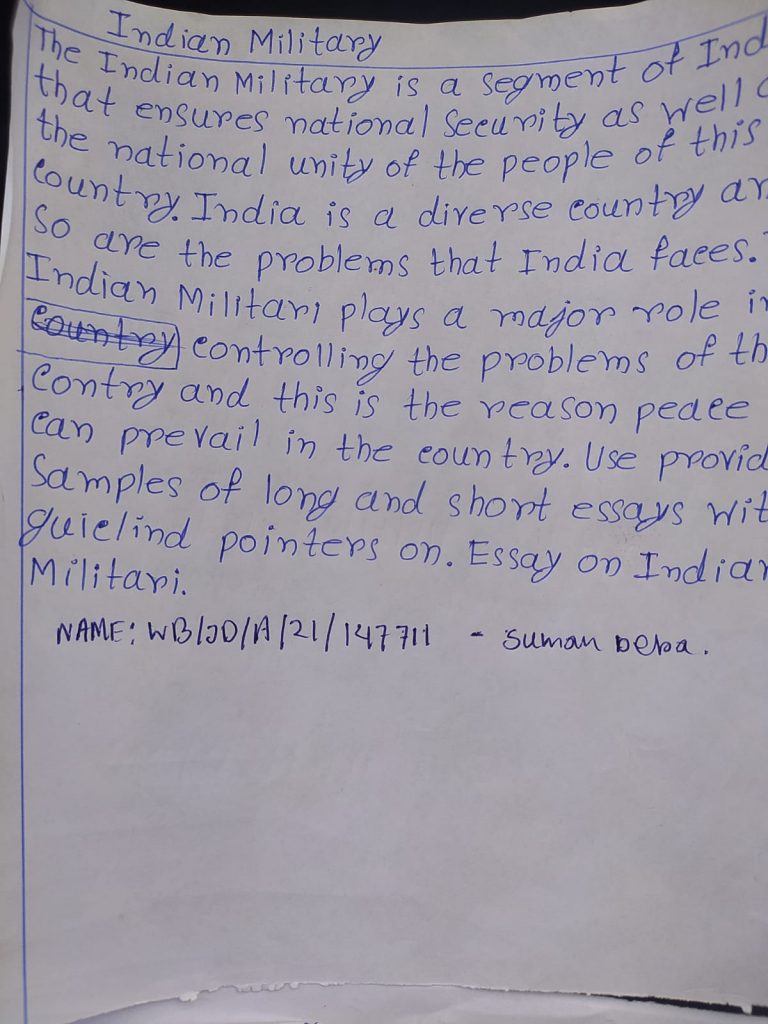 Indian Military
The Indian Military is a segment of Ind
that ensures national Security as well
the national unity of the people of this
Country. India is a diverse country an
So are the problems that India faces.
Indian Militari plays a major role in
Country controlling the problems of th
Contry and this is the reason peace
Can prevail in the country. Use provid
Samples of long and short essays wit
guielind pointers on. Essay on Indian
Militari.
NAME: WB/JD/A/21/147711 - Suman Deba.